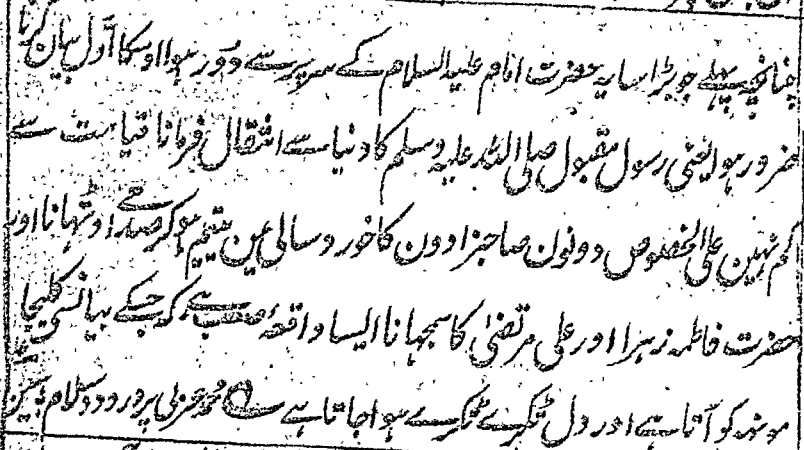 چنانچہ پہلے جو بڑا سایہ حضرت امام علیہ السلام کے سر پر سے دور ہوا اوسکا اول بیان کرنا
ضرور ہوا یعنی رسول مقبول صلی اللہ علیہ وسلم کا دنیا سے انتقال فرمانا قیامت سے
کم نہین علی الخصوص دونون صاحبزادون کا خورد سالی مین یتیم ہوکر صدمے اوٹہانا اور
حضرت فاطمہ زہرا اور علی مرتضیٰ کا سمجہانا ایسا واقعہ صعب ہے کہ جسکے بیانسے کلیجا
مونہہ کو آتا ہے اور دل ٹکڑے ٹکڑے ہوا جاتا ہے محمد عربی پر درود و سلام